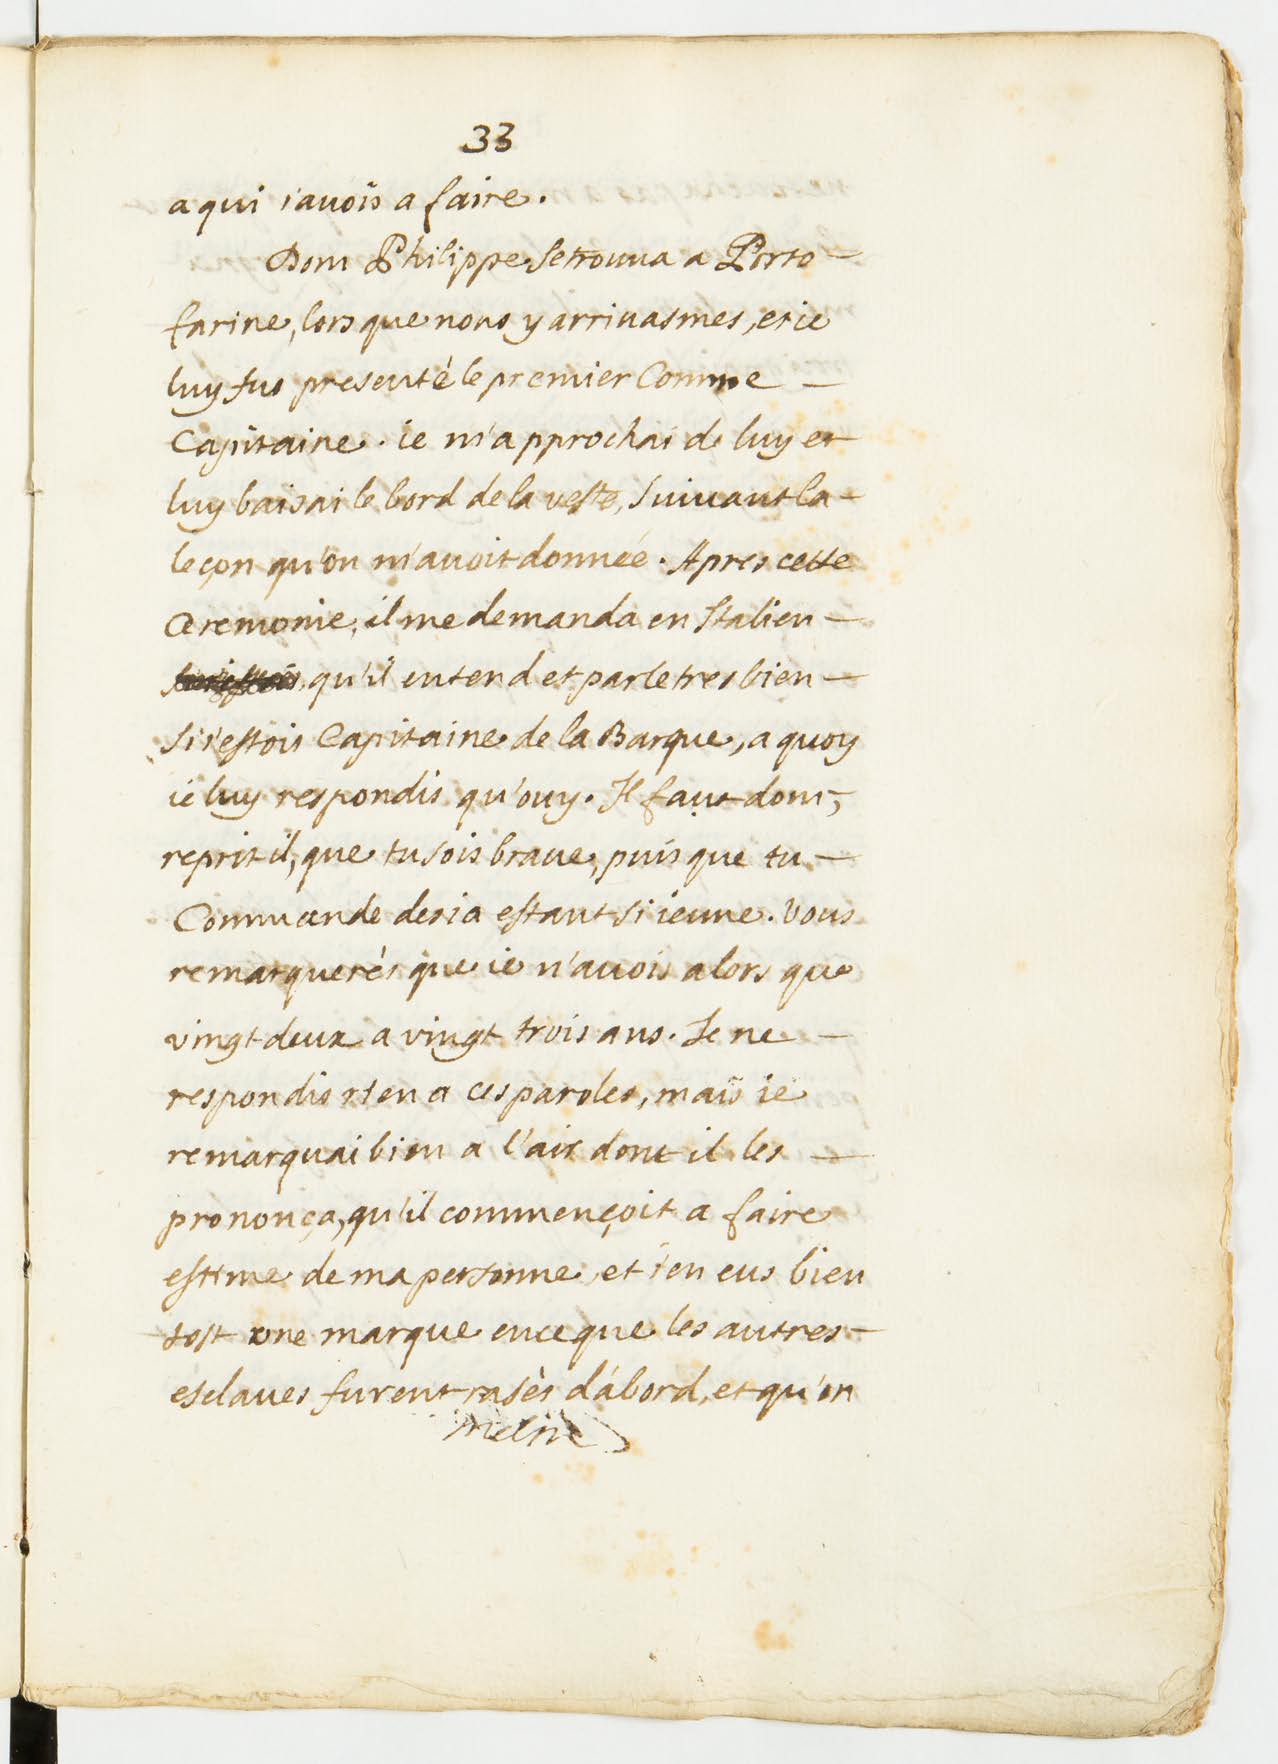 33
a qui i'auois a faire.
Dom Philippe se trouua a Porto
farine, lors que nous y arriuasmes, et ie
luy fus presenté le premier Comme
Capitaine. ie m'approchai de luy et
luy baisai le bord de la veste, suiuant la
leçon qu'on m'auoit donnée. Apres cette
Ceremonie, il me demanda en Italien
qu'il entend et parle tres bien
si i'estois Capitaine de la Barque, a quoy
ie luy respondis qu'ouy. Il faut donc,
reprit il, que tu sois braue, puis que tu
Commande desia estant si ieune. Vous
remarquerés que ie n'auois alors que
vingt deux a vingt trois ans. Ie ne
respondis rien a ces paroles, mais ie
remarquai bien a l'air dont il les
prononça, qu'il commençoit a faire
estime de ma personne, et i'en eus bien
tost une marque en ce que les autres
esclaues furent rasès d'abord, et qu'on